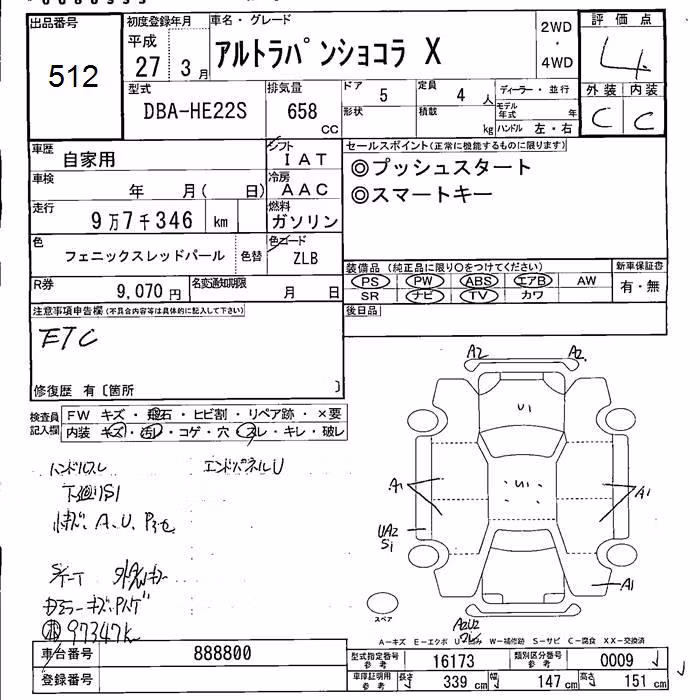 出品番号
512
初度登録年月
平成
27 3月
車名・グレード
アルトラパンショコラ X
2WD
・
4WD
評価点
4
外装 内装
C C
型式
DBA-HE22S
排気量
658
cc
ドア 5
定員 4 人
形状
積載 kg
ディーラー・並行
モデル年式 年
ハンドル 左・右
車歴 自家用
シフト IAT
車検 年 月( 日)
冷房 AAC
走行 9万7千346 km
燃料 ガソリン
色 フェニックスレッドパール 色替
色コード ZLB
R券 9,070円
名変通知期限 月 日
セールスポイント(正常に機能するものに限ります)
◎プッシュスタート
◎スマートキー
装備品 (純正品に限り○をつけてください)
PS PW ABS エアB AW
SR ナビ TV カワ
新車保証書
有・無
後日品
注意事項申告欄(不具合内容等は具体的に記入して下さい)
ETC
修復歴 有〔箇所 〕
検査員記入欄
FW キズ・飛石・ヒビ割・リペア跡・×要
内装 キズ・汚レ・コゲ・穴・スレ・キレ・破レ
ハンドルスレ エンドパネルU
下廻りS1
A、U、
97347K
A2 A2
U1
A1 U1 A1
UA2
S1
A1
スペア
A2U2
A-キズ E-エクボ U-凹み W-補修跡 S-サビ C-腐食 XX-交換済
車台番号 888800
登録番号
型式指定番号 参考 16173
類別区分番号 参考 0009
車庫証明用 参考 長さ 339 cm 幅 147 cm 高さ 151 cm